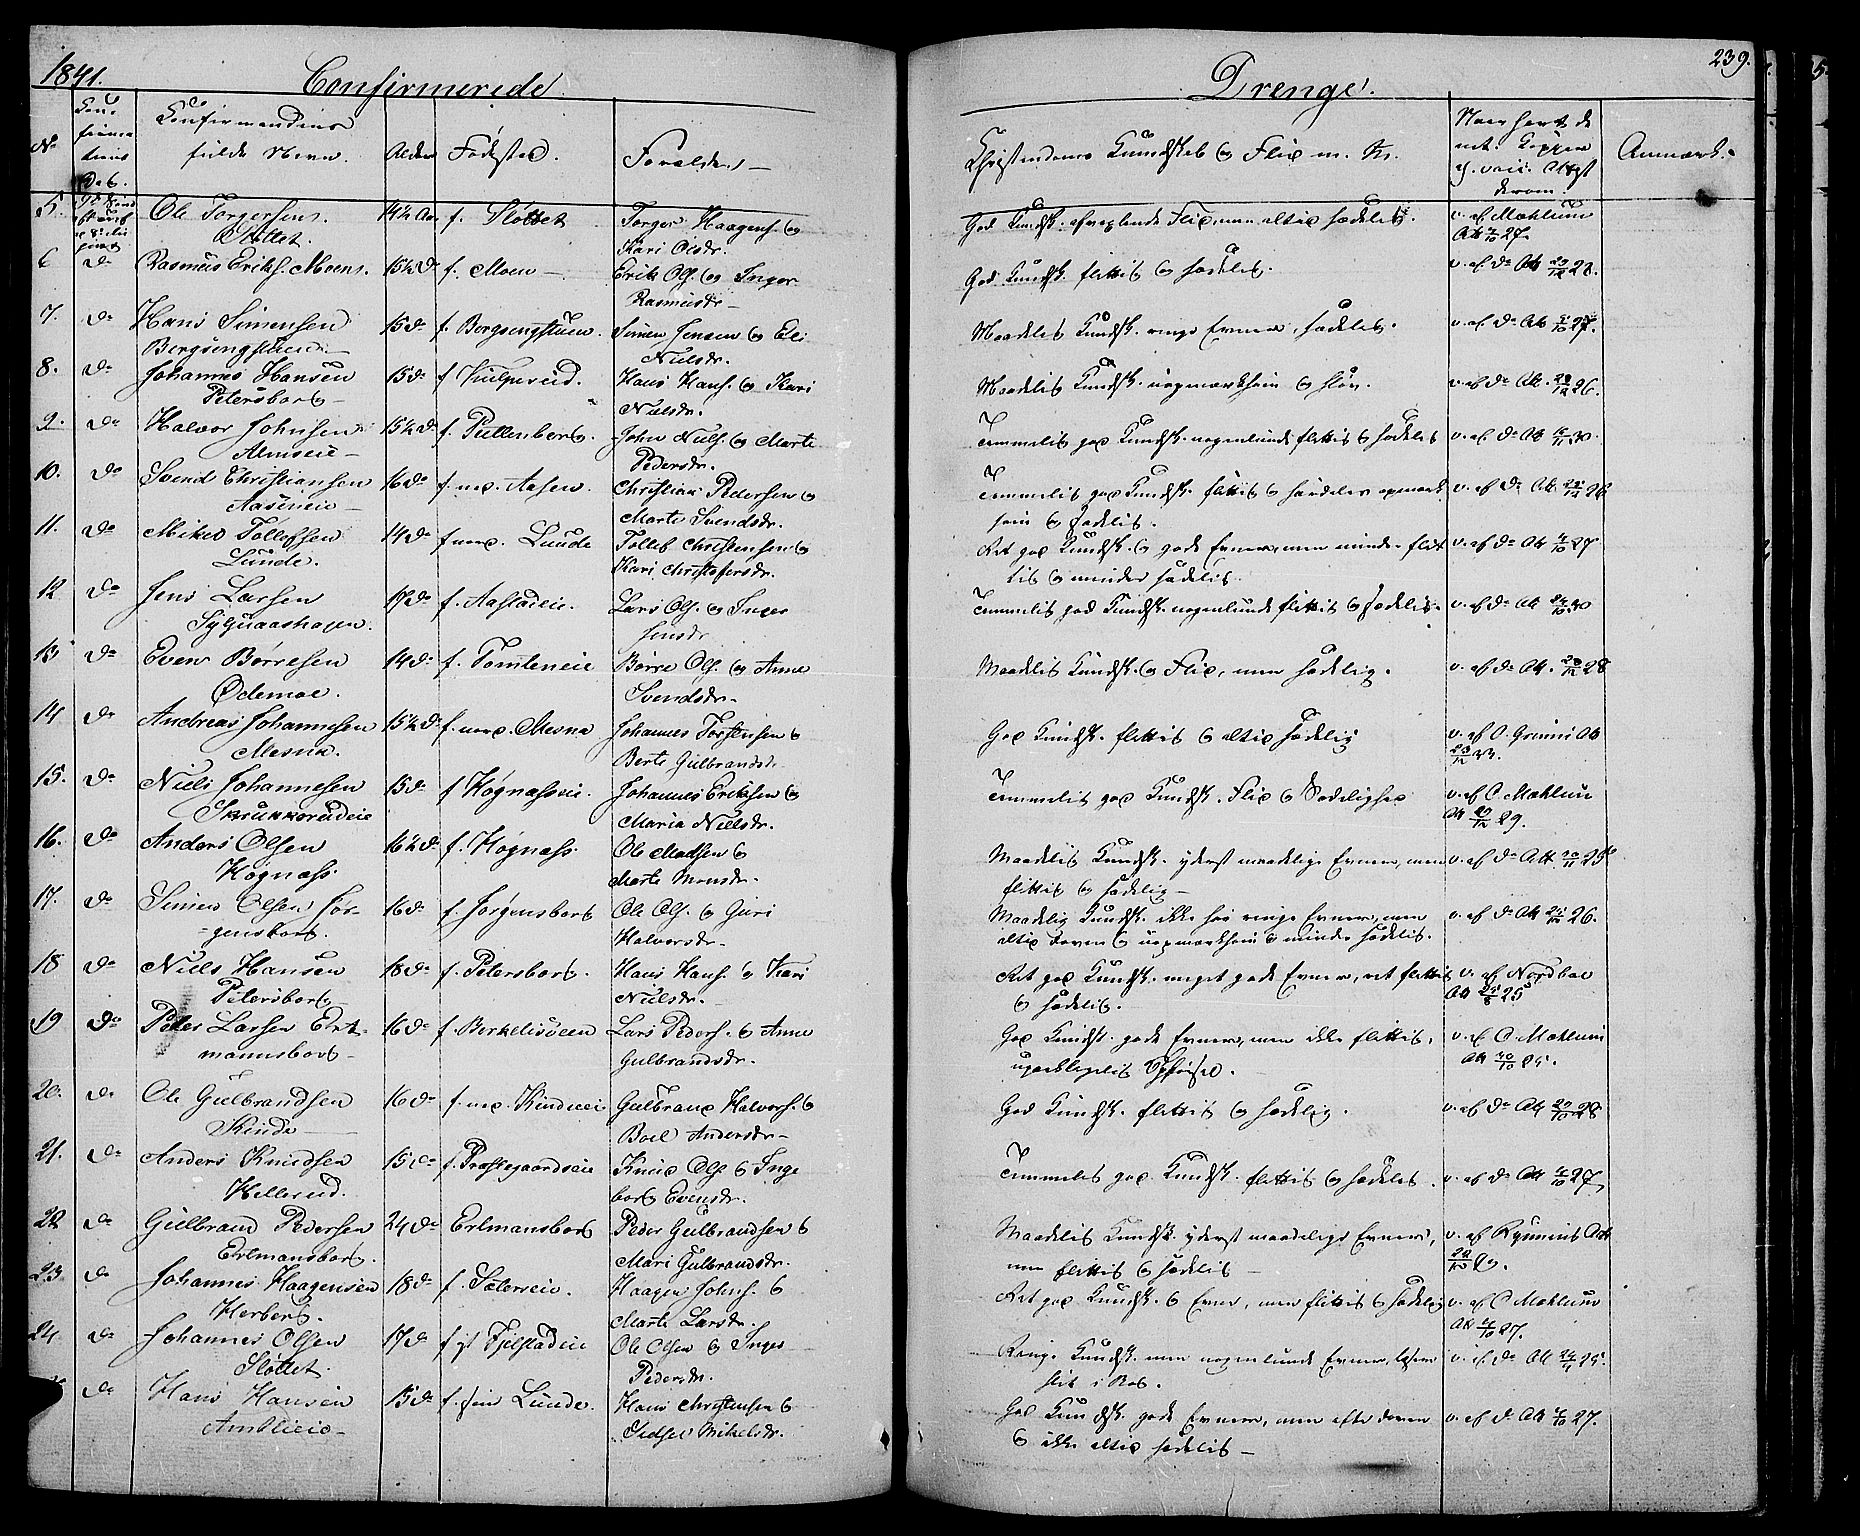 1841.
Confirmerede
Drenge.
239.
No
Confirmations Dat.
Confirmandens fulde Navn.
Alder
Fødested.
Forældre,
Christendoms Kundskab og Flid m. M.
Anmærk.
5. Ole Torgersen Slottet. 14½ Aar f. Slottet Torger Haagens. og Kari Olsdr. God Kundsk. Flid, men altid sædelig. v. af Mæhlum Att 27.
6 do Rasmus Eriks. Moen. 15½ do f. Moen Erik Ols. og Inger Rasmusdr. God Kundsk. flittig og sædelig. v. af do Att 28.
7. do Hans Simensen Bergsengstuen 15 do f. Bergsengstuen. Simen Jensen og Eli Nielsdr. Maadelig Kundsk. ringe Evner, sædelig. v. af do Att 27.
8. do Johannes Hansen Petersborg 15 do f. Hans Hans. og Kari Nielsdr. Maadelig Kundsk. uopmærksom og sløv. v. af do Att. 26.
9. do Halvor Johnsen 15½ do f. Pullenborg. John Niels. og Marte Pedersdr. Temmelig god Kundsk. nogenlunde flittig og sædelig v. af do Att 30.
10. do Svend Christiansen Aaseneie 16 do f. ned. Aasen. Christian Pedersen og Marte Svendsdr. Temmelig god Kundsk. flittig og særdeles opmærksom og sædelig. v. af do Att. 26
11. do Mikel Tollefsen Lunde. 14 do f. ned. Lunde Tollef Christensen og Kari Christofersdr. Ret god Kundsk. og gode Evner, men mindre flittig og mindre sædelig. v. af do Att 27
12 do Jens Larsen 17 do f. Aastadeie. Lars Ols. og Inger Jensdr Temmelig god Kundsk. nogenlunde flittig og sædelig. v. af do Att 30
13 do Even Børresen Ødemoe. 14 do f. Tomteneie Børre Ols. og Anne Svendsdr. Maadelig Kundsk. og Flid, men sædelig. v. af do Att. 28
14 do Andreas Johannesen Mesna. 15½ do f. ned. Mesna Johannes Torstensen og Berte Gulbrandsdr. God Kundsk. flittig og altid sædelig v. af O. Att
15. do Niels Johannesen Skrukkerudeie 15 do f. Høgnæsseie. Johannes Eriksen og Maria Nielsdr. Temmelig god Kundsk. Flid og Sædelighed v. af C. Mæhlum Att 29.
16. do Anders Olsen Høgnæss. 16½ do f. Høgnæss. Ole Madsen og Marte Monsdr. Maadelig Kundsk. yderst maadelige Evner, men flittig og sædelig v. af do Att. 25
17. do Simen Olsen Jørgensborg. 16 do f. Jørgensborg Ole Ols. og Guri Halvorsdr. Maadelig Kundsk. ikke saa ringe Evner, men altid doven og uopmærksom og mindre sædelig. v. af do Att 26.
18 do Niels Hansen Petersborg 18 do f. Petersborg. Hans Hans. og Kari Nielsdr. Ret god Kundsk. meget gode Evner, ret flittig og sædelig. v. af Nordboe Att 25
19 do Peder Larsen Ertmannsborg 16 do f. Lars Peders. og Anne Gulbrandsdr. God Kundsk. gode Evner, men ikke flittig, v. af C. Mæhlum Att 25.
20. do Ole Gulbrandsen Kinde 16 do f. ned. Kindeeie Gulbrand Halvors. og Boel Andersdr. God Kundsk. flittig og sædelig. v. af do Att 28
21. do Anders Knudsen Hellerud. 15 do f. Præstegaardseie Knud Ols. og Ingeborg Evensdr. Temmelig god Kundsk. flittig og sædelig. v. af do Att 27
22 do Gulbrand Pedersen Ertmansborg. 24 do Ertmansborg Peder Gulbrandsen og Mari Gulbrandsdr. Maadelig Kundsk. yderst maadelige Evner, men flittig og sædelig v. af Att
23. do Johannes Haagensen Herberg. 18 do f. Sætereie. Haagen Johns. og Marte Larsdr. Ret god Kundsk. og Evner, men flittig og sædelig v. af C. Mæhlum Att 27.
24. do Johannes Olsen Slottet. 17 do f. Fjelstadeie Ole Olsen og Inger Pedersdr. Ringe Kundsk. men nogenlunde Evner, læser slet i Bog. v. af do Att 25.
do Hans Hansen 15 do f. Lunde. Hans Christensen og Sidsel Mikelsdr. God Kundsk. gode Evner, men ofte doven og ikke altid sædelig v. af do Att 27.